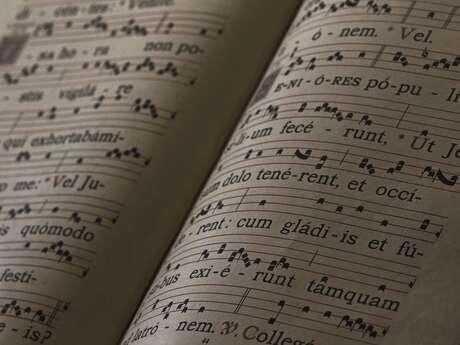 di - cén - tes: * Veníte.
na ho - ra non po-
stis vigilá - re
qui exhortabámi-
me: * Vel Ju-
is quómodo
festí-
is?
ó - nem. * Vel.
ENI - Ó - RES pópu - li
li - um fecé - runt, * Ut Je
um dolo tené - rent, et occí-
rent: cum gládi - is et fú-
bus exi - é - runt tamquam
latró - nem. ℣. Collegé